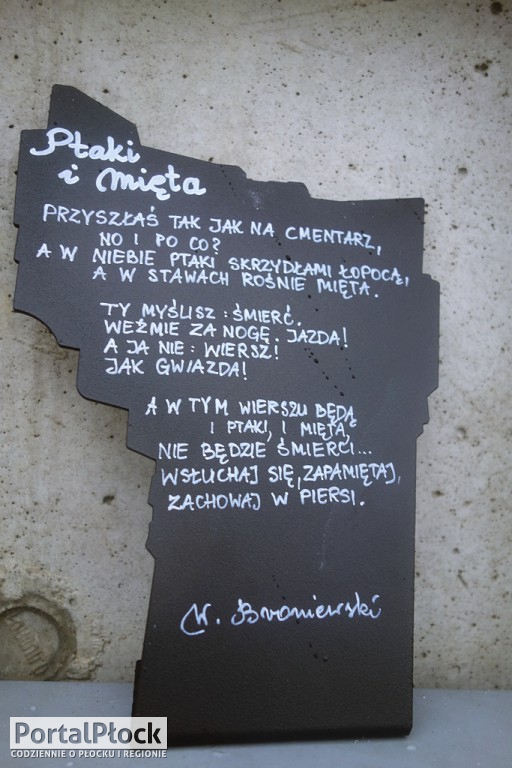 Ptaki
i mięta
PRZYSZŁAŚ TAK JAK NA CMENTARZ,
NO I PO CO?
A W NIEBIE PTAKI SKRZYDŁAMI ŁOPOCĄ,
A W STAWACH ROŚNIE MIĘTA.
TY MYŚLISZ: ŚMIERĆ.
WEŹMIE ZA NOGĘ. JAZDA!
A JA NIE: WIERSZ!
JAK GWIAZDA!
A W TYM WIERSZU BĘDĄ
I PTAKI, I MIĘTA,
NIE BĘDZIE ŚMIERCI...
WSŁUCHAJ SIĘ, ZAPAMIĘTAJ,
ZACHOWAJ W PIERSI.
W. Broniewski
PortalPłock
CODZIENNIE O PŁOCKU I REGIONIE